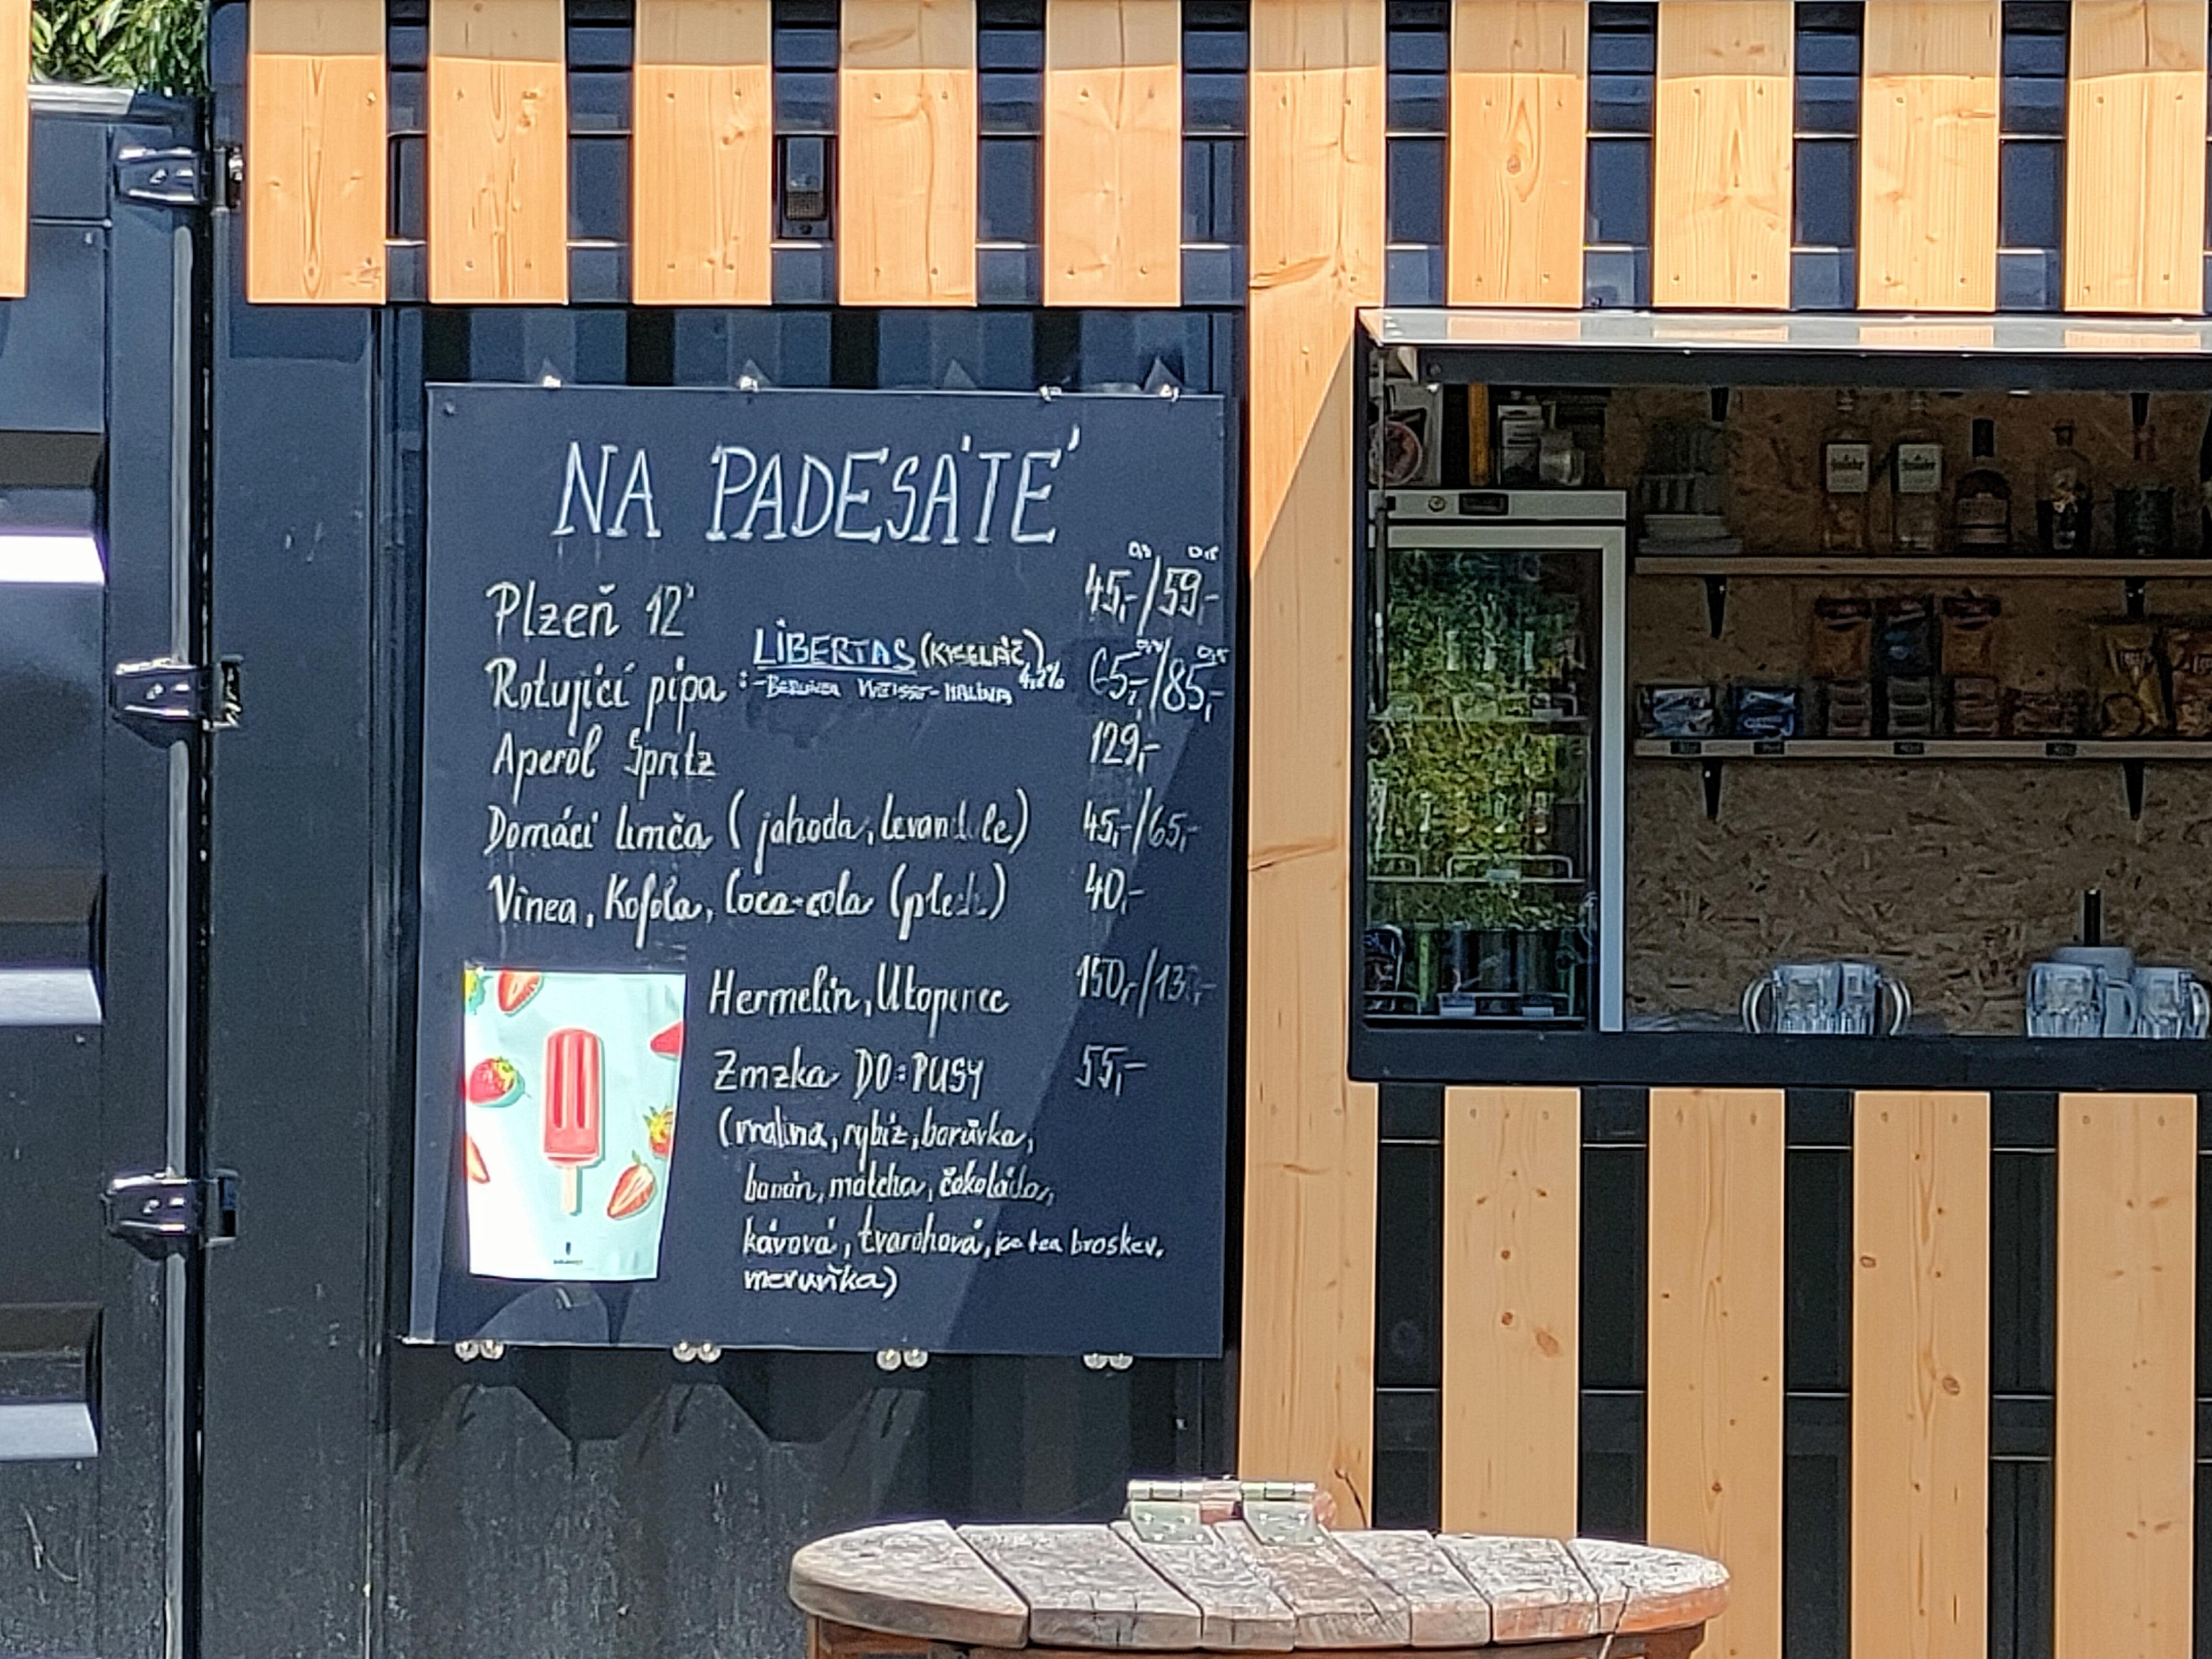 NA PADESÁTÉ
Plzeň 12° 45,-/59,-
Rotující pípa : LIBERTAS (KYSELÁČ) 4,2% 65,-/85,-
-BERLINER WEISSE-MALINA
Aperol Spritz 129,-
Domácí limča (jahoda, levandule) 45,-/65,-
Vinea, Kofola, Coca-cola (plech) 40,-
Hermelín, Utopenec 150,-/
Zmzka DO:PUSY 55,-
(malina, rybíz, borůvka,
banán, matcha, čokoláda,
kávová, tvarohová, ice tea broskev,
meruňka)